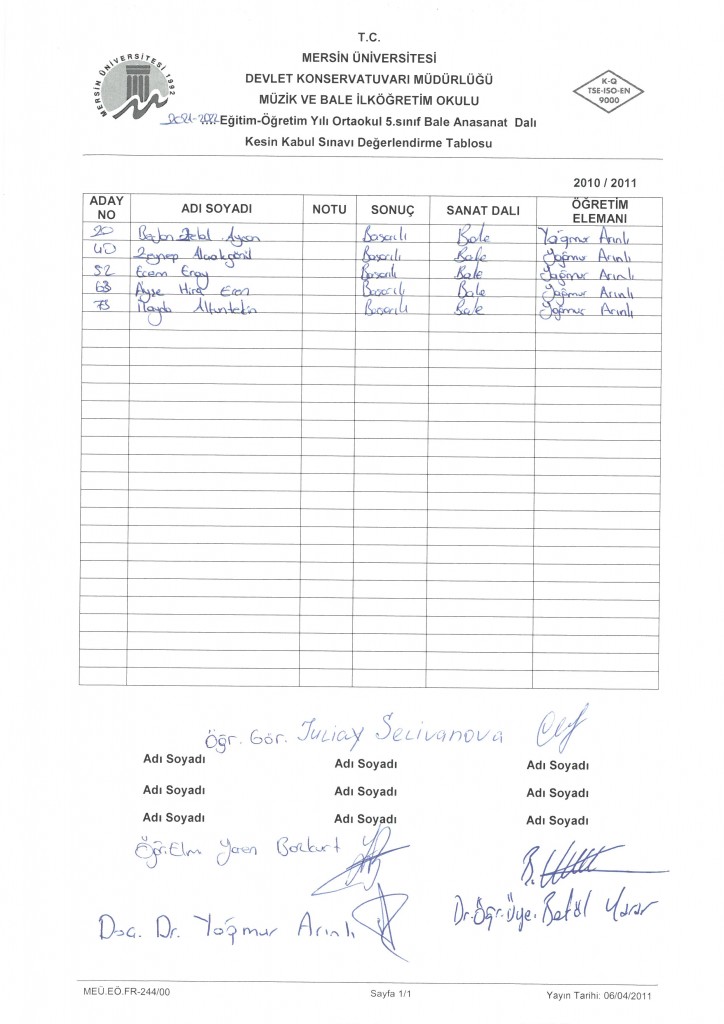 T.C.
MERSİN ÜNİVERSİTESİ
DEVLET KONSERVATUVARI MÜDÜRLÜĞÜ
MÜZİK VE BALE İLKÖĞRETİM OKULU
2021-2022 Eğitim-Öğretim Yılı Ortaokul 5.sınıf Bale Anasanat Dalı
Kesin Kabul Sınavı Değerlendirme Tablosu
MERSİN ÜNİVERSİTESİ 1992
K-Q
TSE-ISO-EN
9000
2010 / 2011
ADAY NO ADI SOYADI NOTU SONUÇ SANAT DALI ÖĞRETİM ELEMANI
20 Ayson Başarılı Bale Yağmur Arınlı
40 Zeynep Başarılı Bale Yağmur Arınlı
52 Ecem Eray Başarılı Bale Yağmur Arınlı
63 Ayşe Hira Eren Başarılı Bale Yağmur Arınlı
73 Altuntekin Başarılı Bale Yağmur Arınlı
Öğr. Gör. Juliay Selivanova
Adı Soyadı Adı Soyadı Adı Soyadı
Adı Soyadı Adı Soyadı Adı Soyadı
Adı Soyadı Adı Soyadı Adı Soyadı
Öğr.Elm Yaren Bozkurt
Dr.Öğr.Üye. Betül Yarar
Doç. Dr. Yağmur Arınlı
MEÜ.EÖ.FR-244/00 Sayfa 1/1 Yayın Tarihi: 06/04/2011